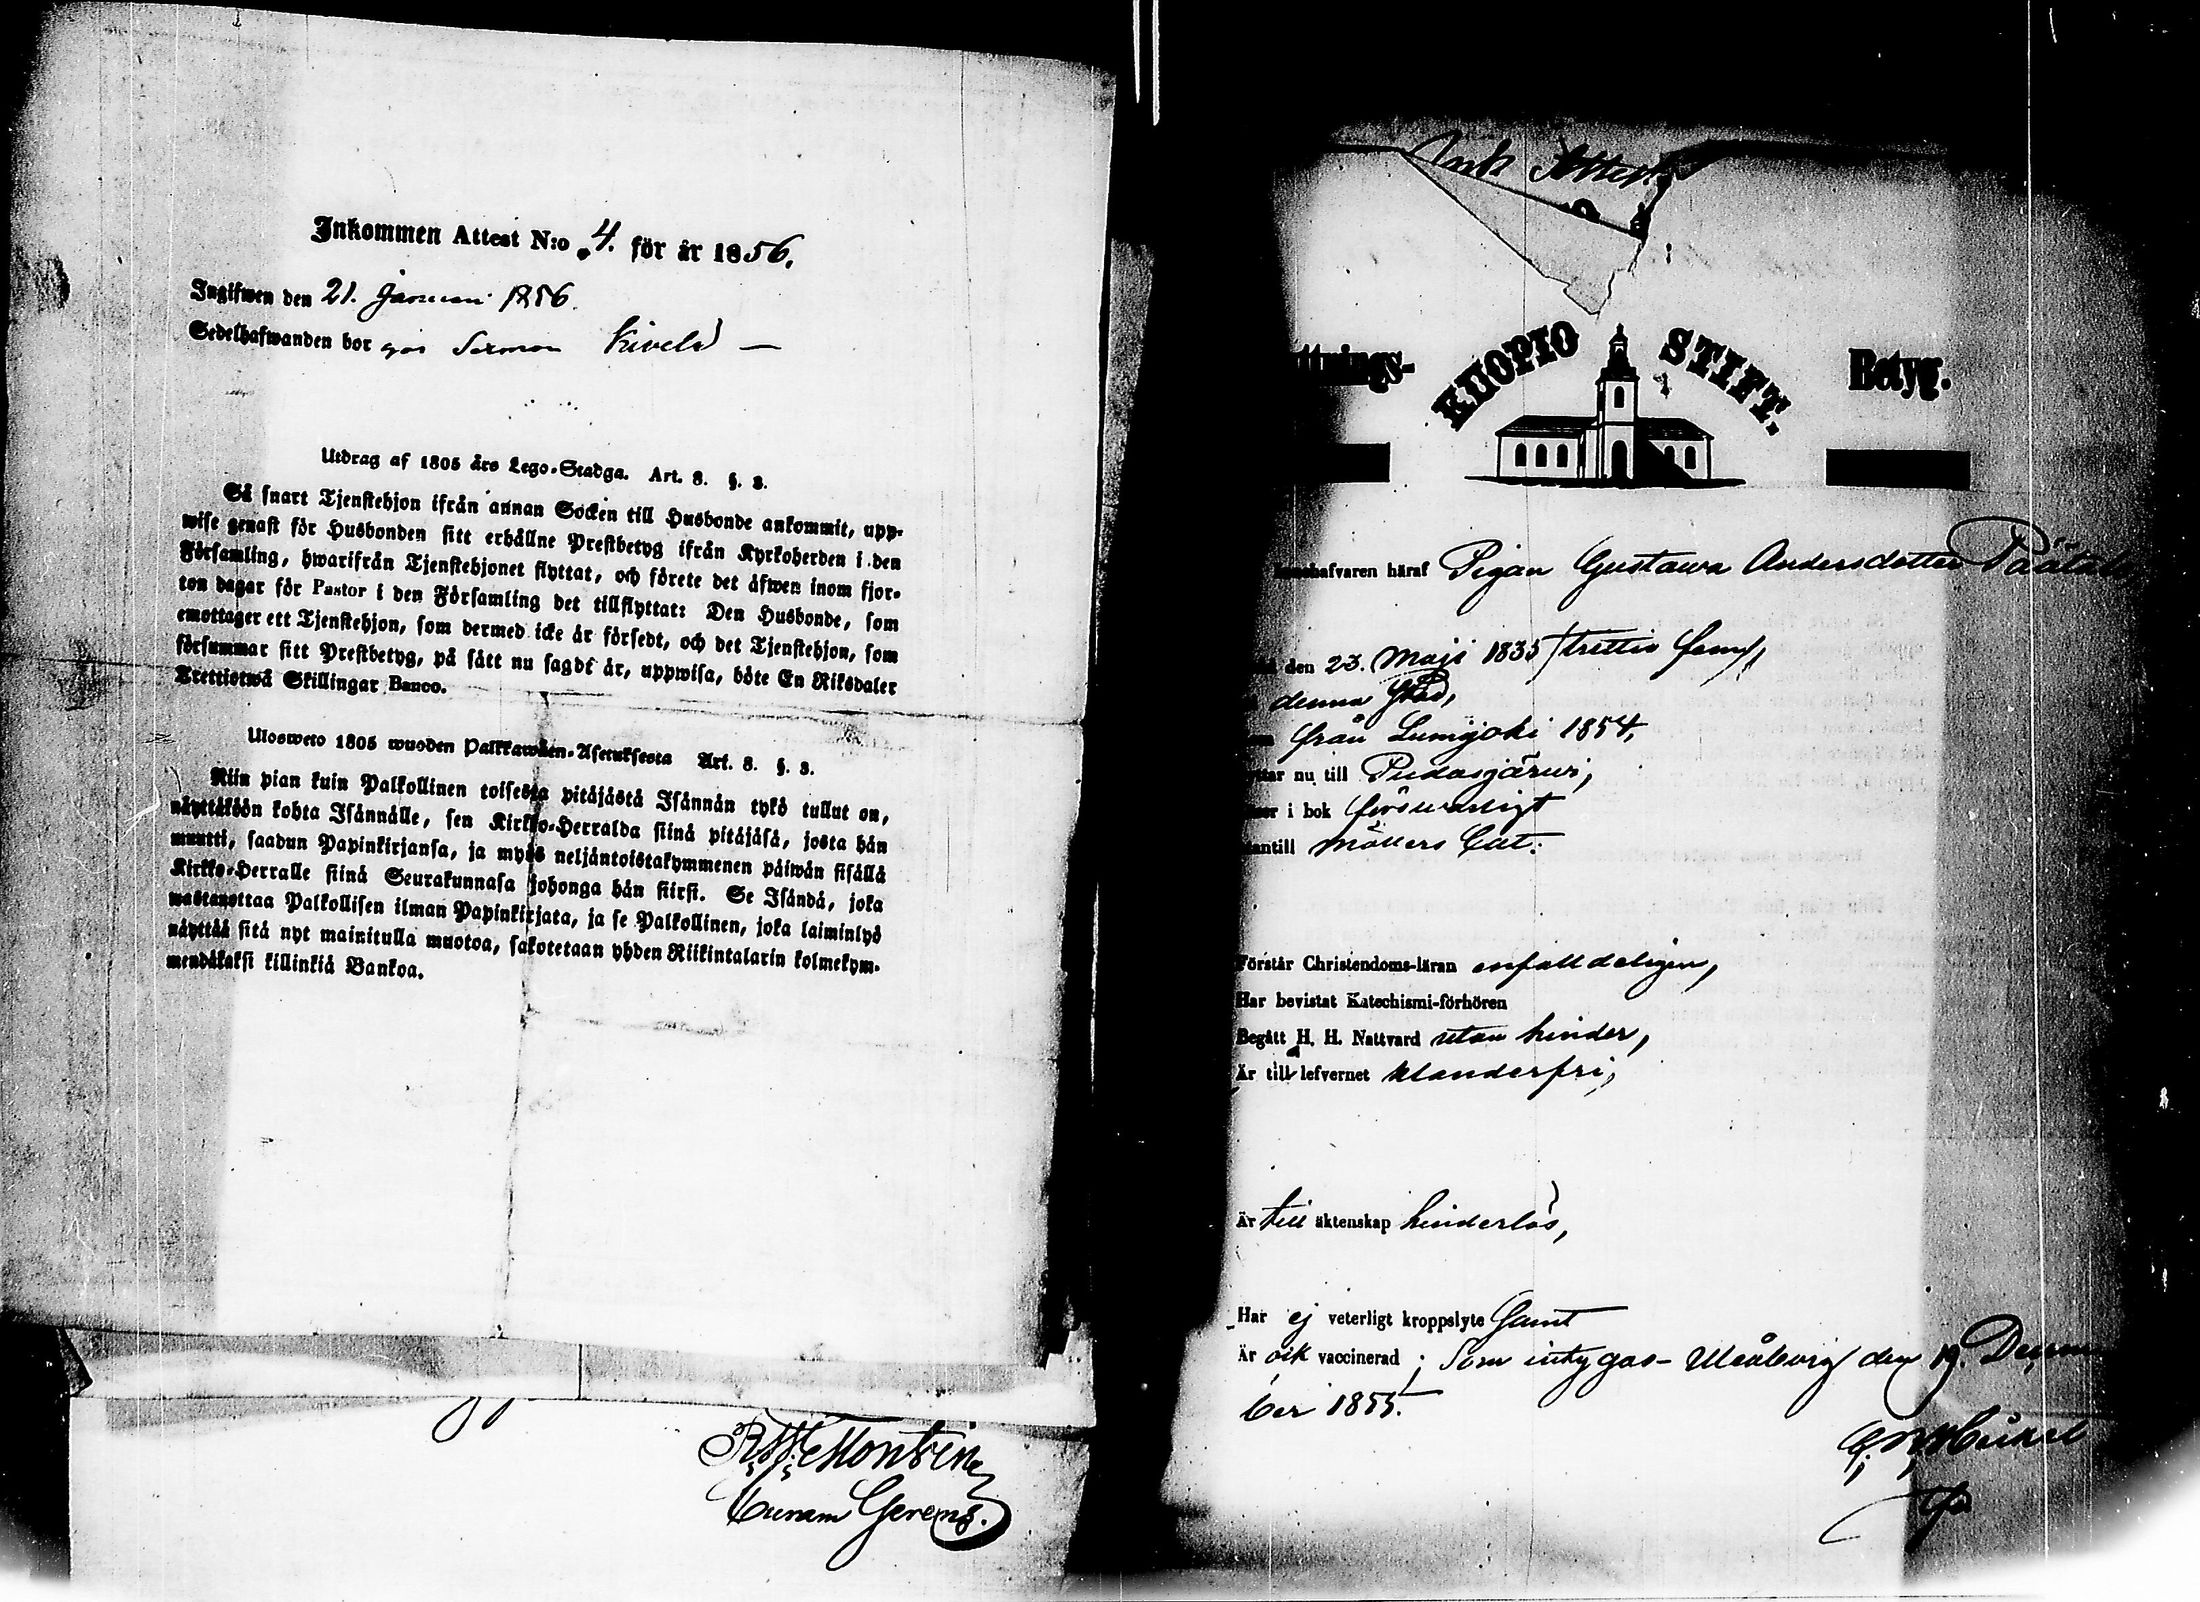 Inkommen Attest N:o 4. för år 1856.
Ingifwen den 21. Januari 1856.
Sedelhafwanden bor Kivelä —
Utdrag af 1805 års Lego-Stadga. Art. 8. §. 3.
Så snart Tjenstehjon ifrån annan Socken till Husbonde ankommit, upp-
wise genast för Husbonden sitt erhållne Prestbetyg ifrån Kyrkoherden i den
Församling, hwarifrån Tjenstehjonet flyttat, och förete det äfwen inom fjor-
ton dagar för Pastor i den Församling det tillflyttat: Den Husbonde, som
emottager ett Tjenstehjon, som dermed icke är försedt, och det Tjenstehjon, som
försummar sitt Prestbetyg, på sätt nu sagdt är, uppwisa, böte En Riksdaler
Trettiotwå Skillingar Banco.
Ulosweto 1805 wuoden Palkkawäen-Asetuksesta Art. 8. §. 3.
Niin pian kuin Palkollinen toisesta pitäjästä Isännän tykö tullut on,
näyttäköön kohta Isännälle, sen Kirkko-Herralda siinä pitäjäsä, josta hän
muutti, saadun Papinkirjansa, ja myös neljäntoistakymmenen päiwän sisällä
Kirkko-Herralle siinä Seurakunnasa johonga hän siirsi. Se Isändä, joka
wastanottaa Palkollisen ilman Papinkirjata, ja se Palkollinen, joka laiminlyö
näyttää sitä nyt mainitulla muotoa, sakotetaan yhden Riikintalarin kolmekym-
mendäkaksi killinkiä Bankoa.
Curam Gerens.
Ink Attest
ttnings- KUOPIO STIFT. Betyg.
hafvaren häraf Pigan Gustawa Andersdotter Päätalo
den 23. Maji 1835 /trettio fem/,
denna Stad,
från Lumijoki 1854,
ttar nu till Pudasjärwi,
ser i bok försvarligt
antill Möllers Cat:
Förstår Christendoms-läran enfalldeligen,
Har bevistat Katechismi-förhören
Begått H. H. Nattvard utan hinder,
Är till lefvernet klanderfri,
Är till äktenskap hinderlös,
Har ej veterligt kroppslyte samt
Är ock vaccinerad; Som intygas – Uleåborg den 19. Decem
ber 1855.